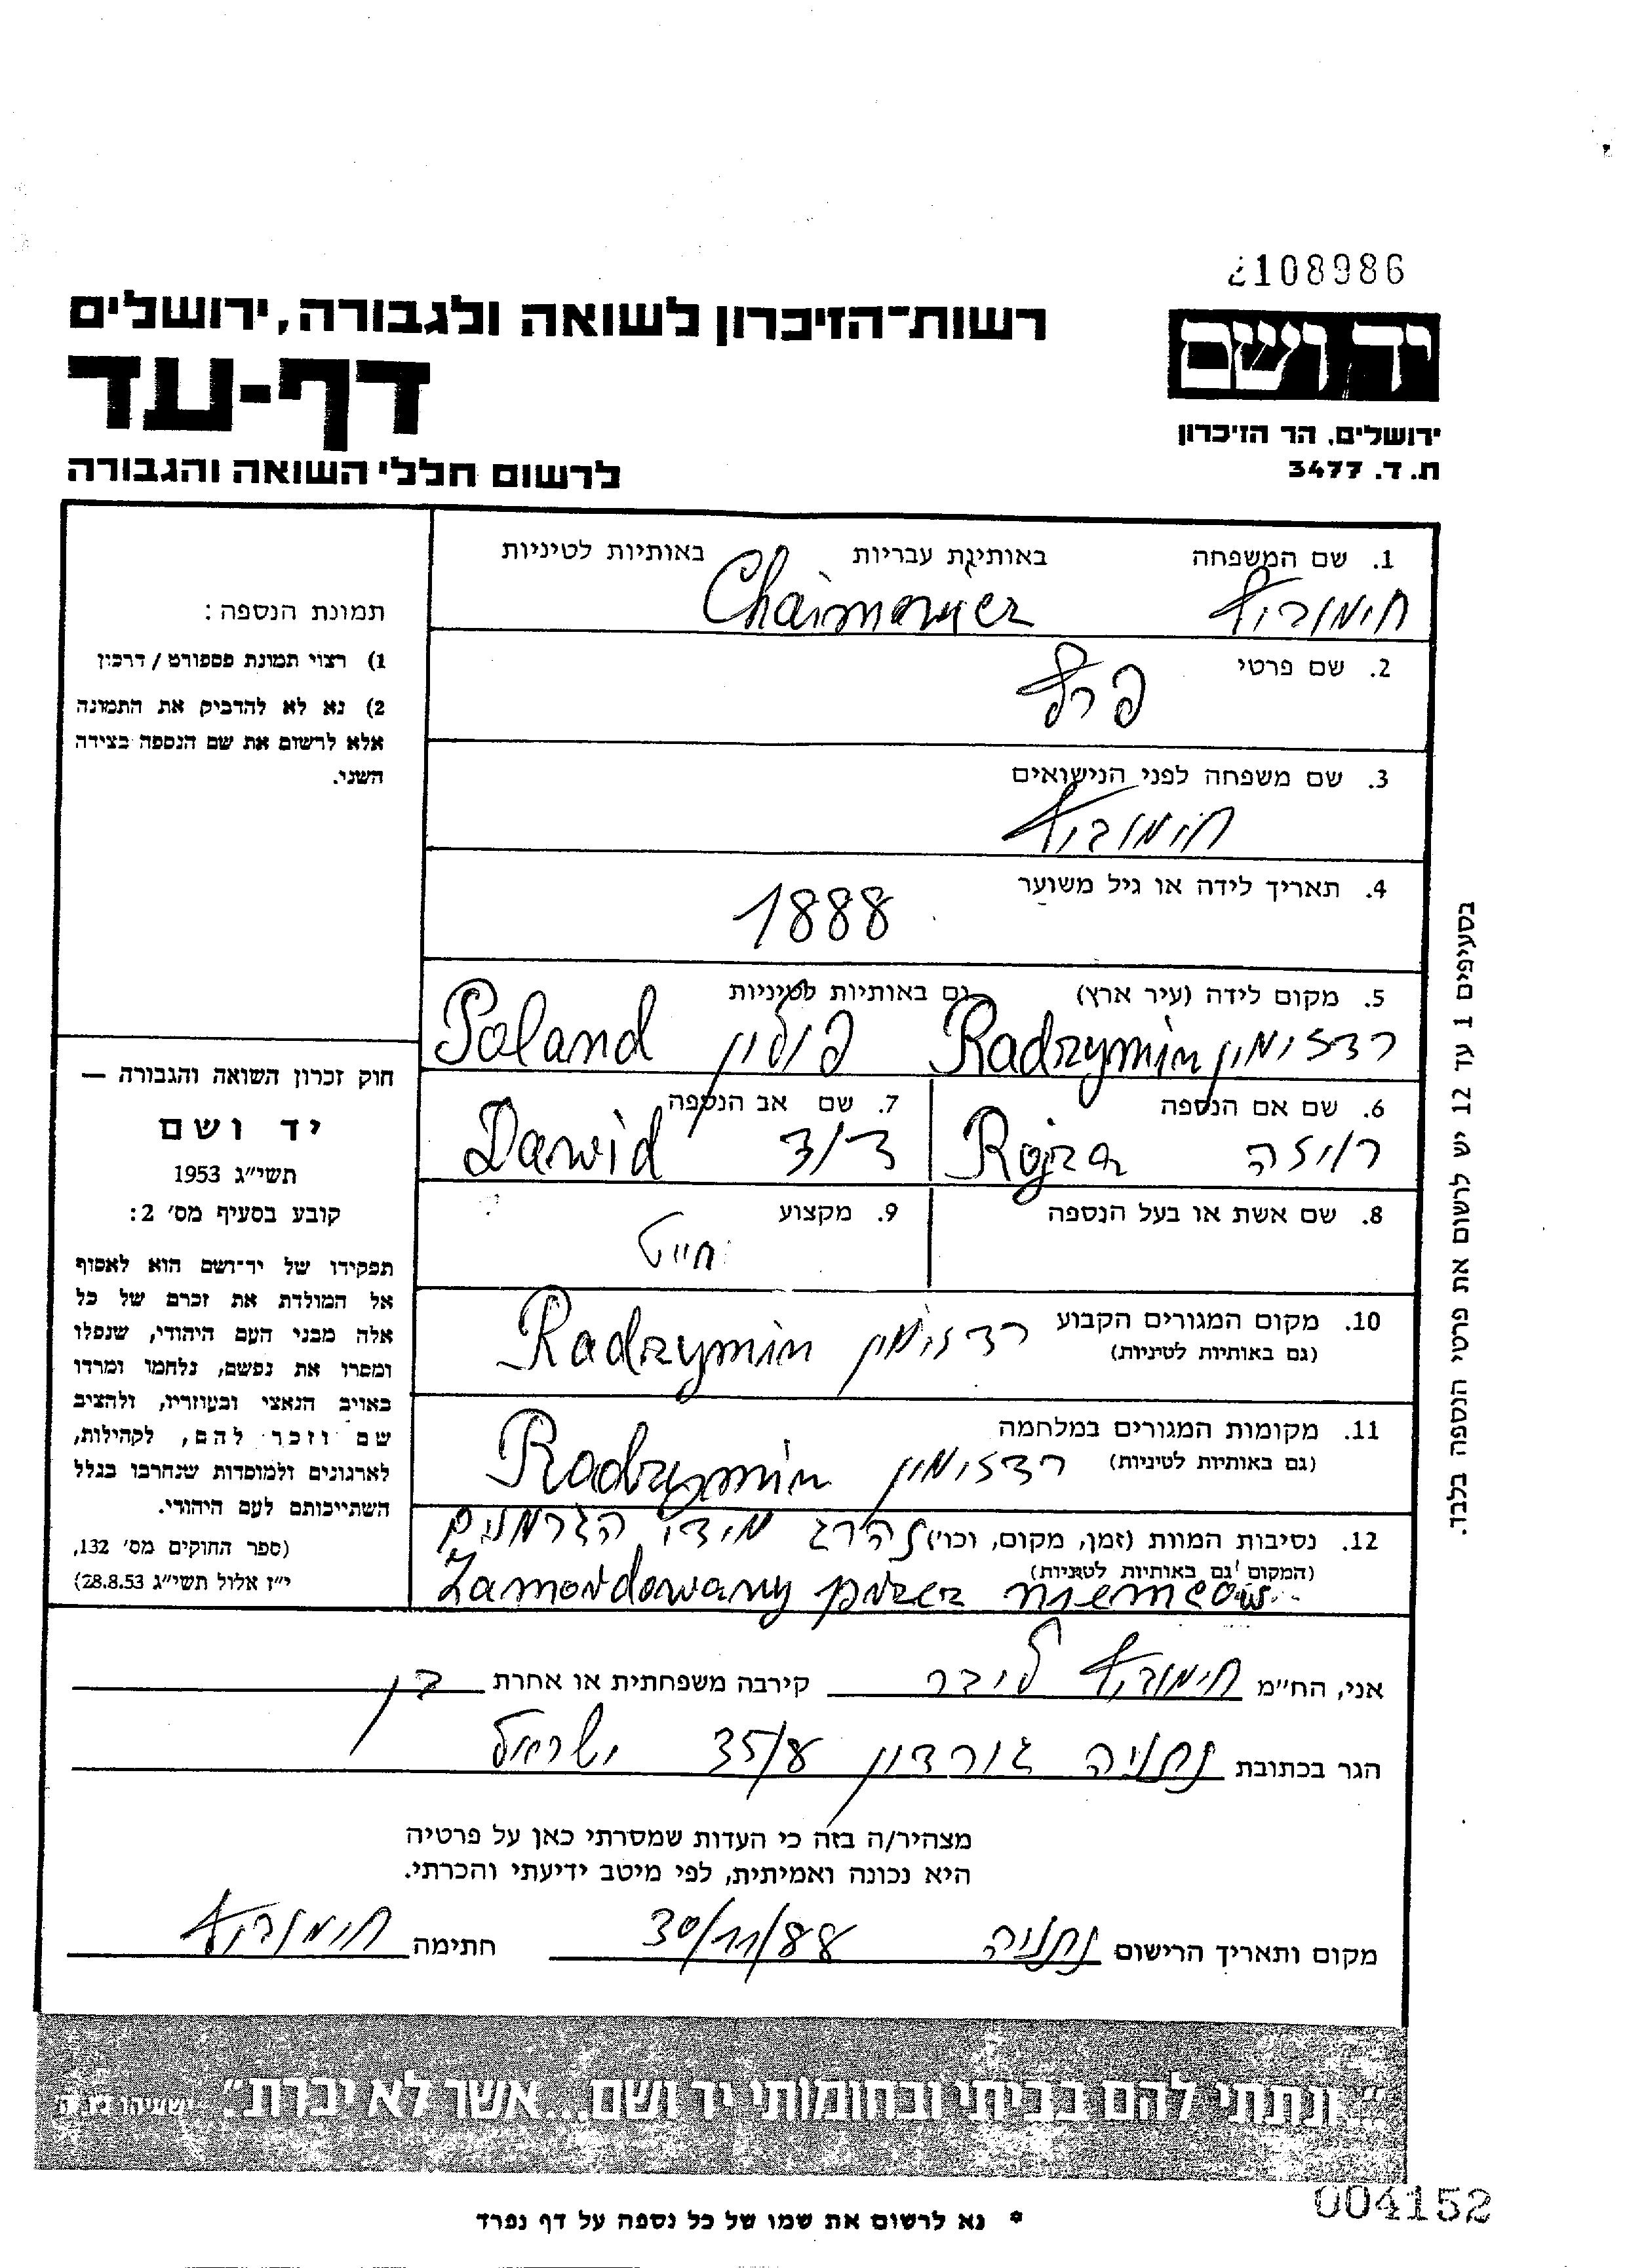 2108986
רשות-הזיכרון לשואה ולגבורה, ירושלים
יד ושם
דף-עד
ירושלים, הר הזיכרון
ת. ד. 3477
לרשום חללי השואה והגבורה
1. שם המשפחה באותיות עבריות באותיות לטיניות
חימוביץ Chaimowicz
2. שם פרטי
3. שם משפחה לפני הנישואים
חימוביץ
4. תאריך לידה או גיל משוער
1888
5. מקום לידה (עיר ארץ) גם באותיות לטיניות
רדזימין Radzymin פולין Poland
6. שם אם הנספה
רויזה Rojza
7. שם אב הנספה
דוד Dawid
8. שם אשת או בעל הנספה
9. מקצוע
חייט
10. מקום המגורים הקבוע
(גם באותיות לטיניות)
רדזימין Radzymin
11. מקומות המגורים במלחמה
(גם באותיות לטיניות)
רדזימין Radzymin
12. נסיבות המוות (זמן, מקום, וכו') נהרג מידי הגרמנים
(המקום גם באותיות לטיניות)
Zamordowany przez niemców
תמונת הנספה:
1) רצוי תמונת פספורט / דרכון
2) נא לא להדביק את התמונה
אלא לרשום את שם הנספה בצידה
השני.
חוק זכרון השואה והגבורה —
יד ושם
תשי"ג 1953
קובע בסעיף מס' 2:
תפקידו של יד-ושם הוא לאסוף
אל המולדת את זכרם של כל
אלה מבני העם היהודי, שנפלו
ומסרו את נפשם, נלחמו ומרדו
באויב הנאצי ובעוזריו, ולהציב
שם וזכר להם, לקהילות,
לארגונים ולמוסדות שנחרבו בגלל
השתייכותם לעם היהודי.
(ספר החוקים מס' 132,
י"ז אלול תשי"ג 28.8.53)
בסעיפים 1 עד 12 יש לרשום את פרטי הנספה בלבד.
אני, הח"מ חימוביץ ליבר קירבה משפחתית או אחרת בן
הגר בכתובת נתניה גורדון 35/8 ישראל
מצהיר/ה בזה כי העדות שמסרתי כאן על פרטיה
היא נכונה ואמיתית, לפי מיטב ידיעתי והכרתי.
מקום ותאריך הרישום נתניה 30/11/88 חתימה חימוביץ
"...ונתתי להם בביתי ובחומותי יד ושם...אשר לא יכרת." ישעיהו נו, ה
004152
* נא לרשום את שמו של כל נספה על דף נפרד